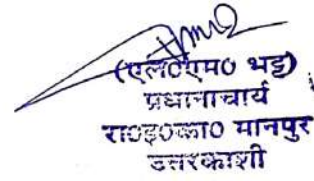 (एल०एम० भट्ट)
प्रधानाचार्य
रा०इ०का० मानपुर
उत्तरकाशी